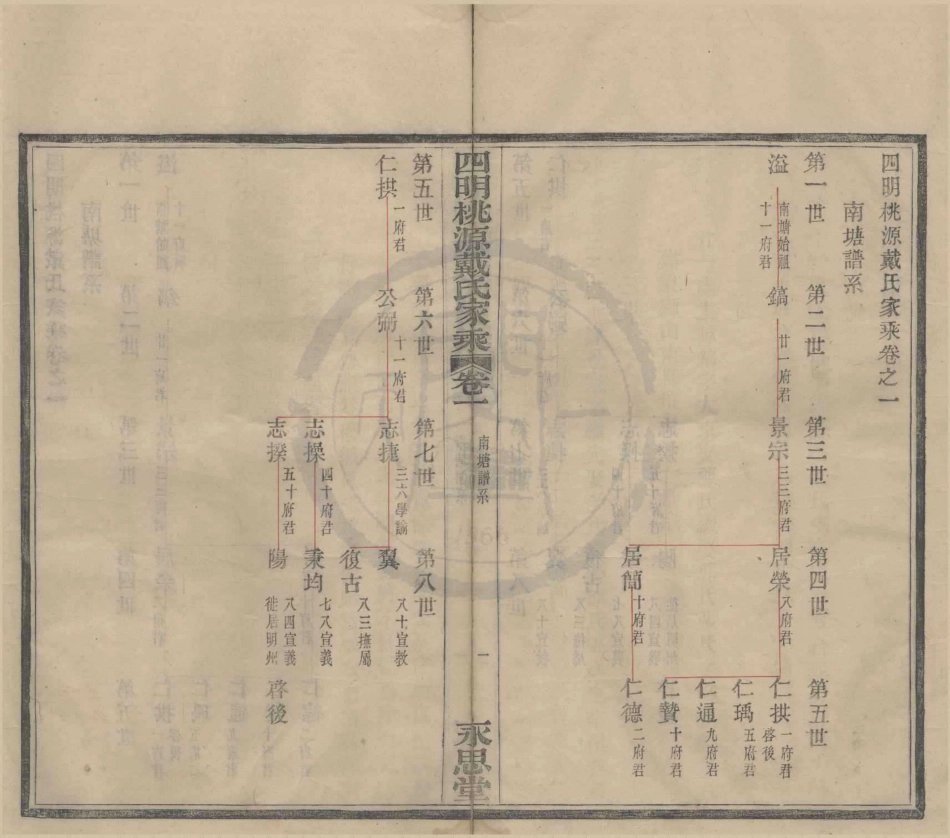 四明桃源戴氏家乘卷之一
南塘譜系
第一世
第二世
第三世
第四世
第五世
溢
南塘始祖
十一府君
鎬
廿一府君
景宗
三三府君
居榮
八府君
居簡
十府君
仁拱
一府君
啓後
仁瑀
五府君
仁通
九府君
仁贊
十府君
仁德
二府君
四明桃源戴氏家乘
卷一
南塘譜系
一
永思堂
第五世
第六世
第七世
第八世
仁拱
一府君
公弼
十一府君
志捷
三六學諭
志操
四十府君
志揆
五十府君
翼
八十宣教
復古
八三撫屬
秉均
七八宣義
陽
八四宣義
徙居明州
啓後